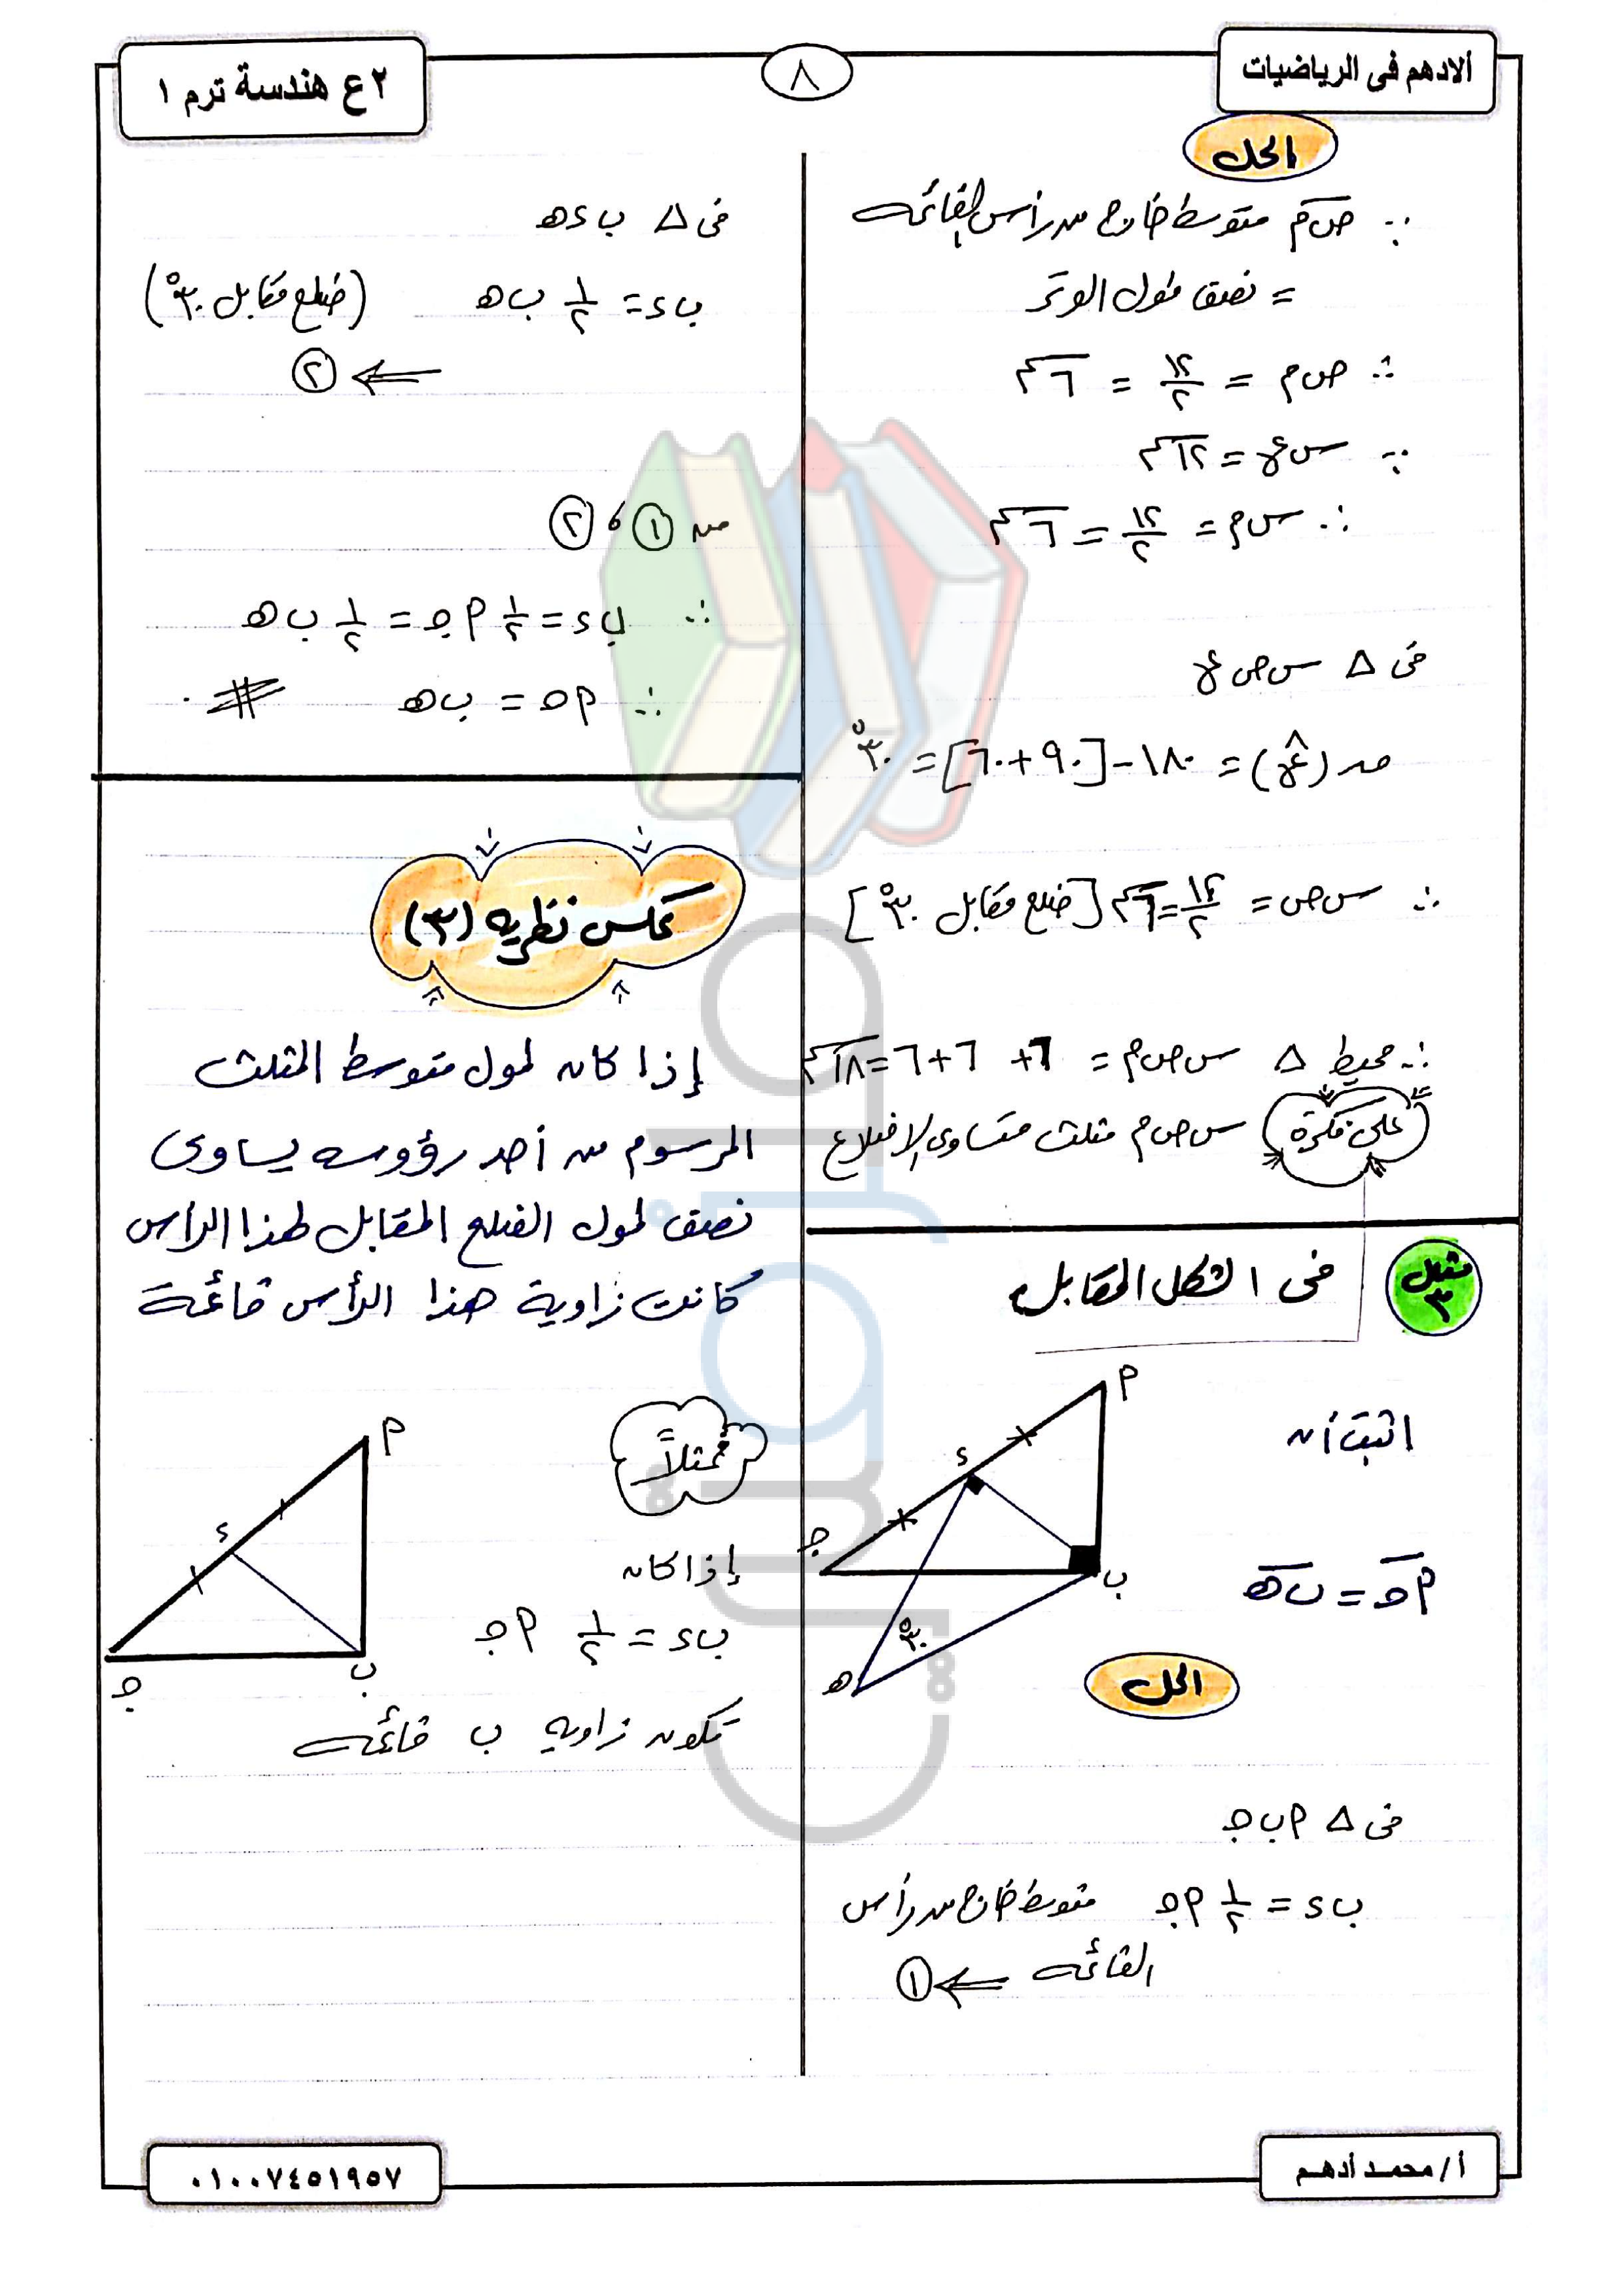 ألادهم فى الرياضيات
٨
٢ع هندسة ترم ١
الحل
∵ ص م متوسط خارج من رأس القائمه
= نصف طول الوتر
∴ ص م = ١٢/٢ = ٦سم
∵ س ع = ١٢سم
∴ س م = ١٢/٢ = ٦سم
فى Δ س ص ع
ق(ع^) = ١٨٠ - [٩٠+٦٠] = ٣٠°
∴ س ص = ١٢/٢ = ٦سم [ضلع مقابل ٣٠°]
∴ محيط Δ س ص م = ٦+ ٦+٦ = ١٨سم
على فكرة س ص م مثلث متساوى الاضلاع
مثال ٣
فى الشكل المقابل
اثبت أن
أ ج = ب هـ
أ
ء
ج
ب
٣٠°
هـ
الحل
فى Δ أ ب ج
ب ء = ١/٢ أ ج متوسط خارج من رأس
القائمه ← ①
فى Δ ب ء هـ
ب ء = ١/٢ ب هـ (ضلع مقابل ٣٠°)
← ②
من ① ، ②
∴ ب ء = ١/٢ أ ج = ١/٢ ب هـ
∴ أ ج = ب هـ #
عكس نظريه (٣)
إذا كان طول متوسط المثلث
المرسوم من أحد رؤوسه يساوى
نصف طول الضلع المقابل لهذا الرأس
كانت زاوية هذا الرأس قائمة
فمثلاً
إذا كان
ب ء = ١/٢ أ ج
تكون زاويه ب قائمه
أ
ء
ج
ب
أ / محمد أدهم
٠١٠٠٧٤٥١٩٥٧